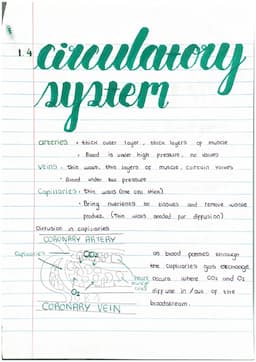 1.4 circulatory
system
arteries • thick outer layer, thick layers of muscle
• Blood is under high pressure, no valves
Veins • thin walls, thin layers of muscle, contain valves
• Blood under low pressure
Capillaries • thin walls (one cell thick)
• Bring nutrients to tissues and remove waste
produce. (Thin walls needed for diffusion)
Diffusion in capillaries
CORONARY ARTERY
Capillaries
CO₂
O₂
heart
muscle
cells
CORONARY VEIN
as blood passes through
the capillaries gas exchange
occurs where CO₂ and O₂
diffuse in/out of the
bloodstream.